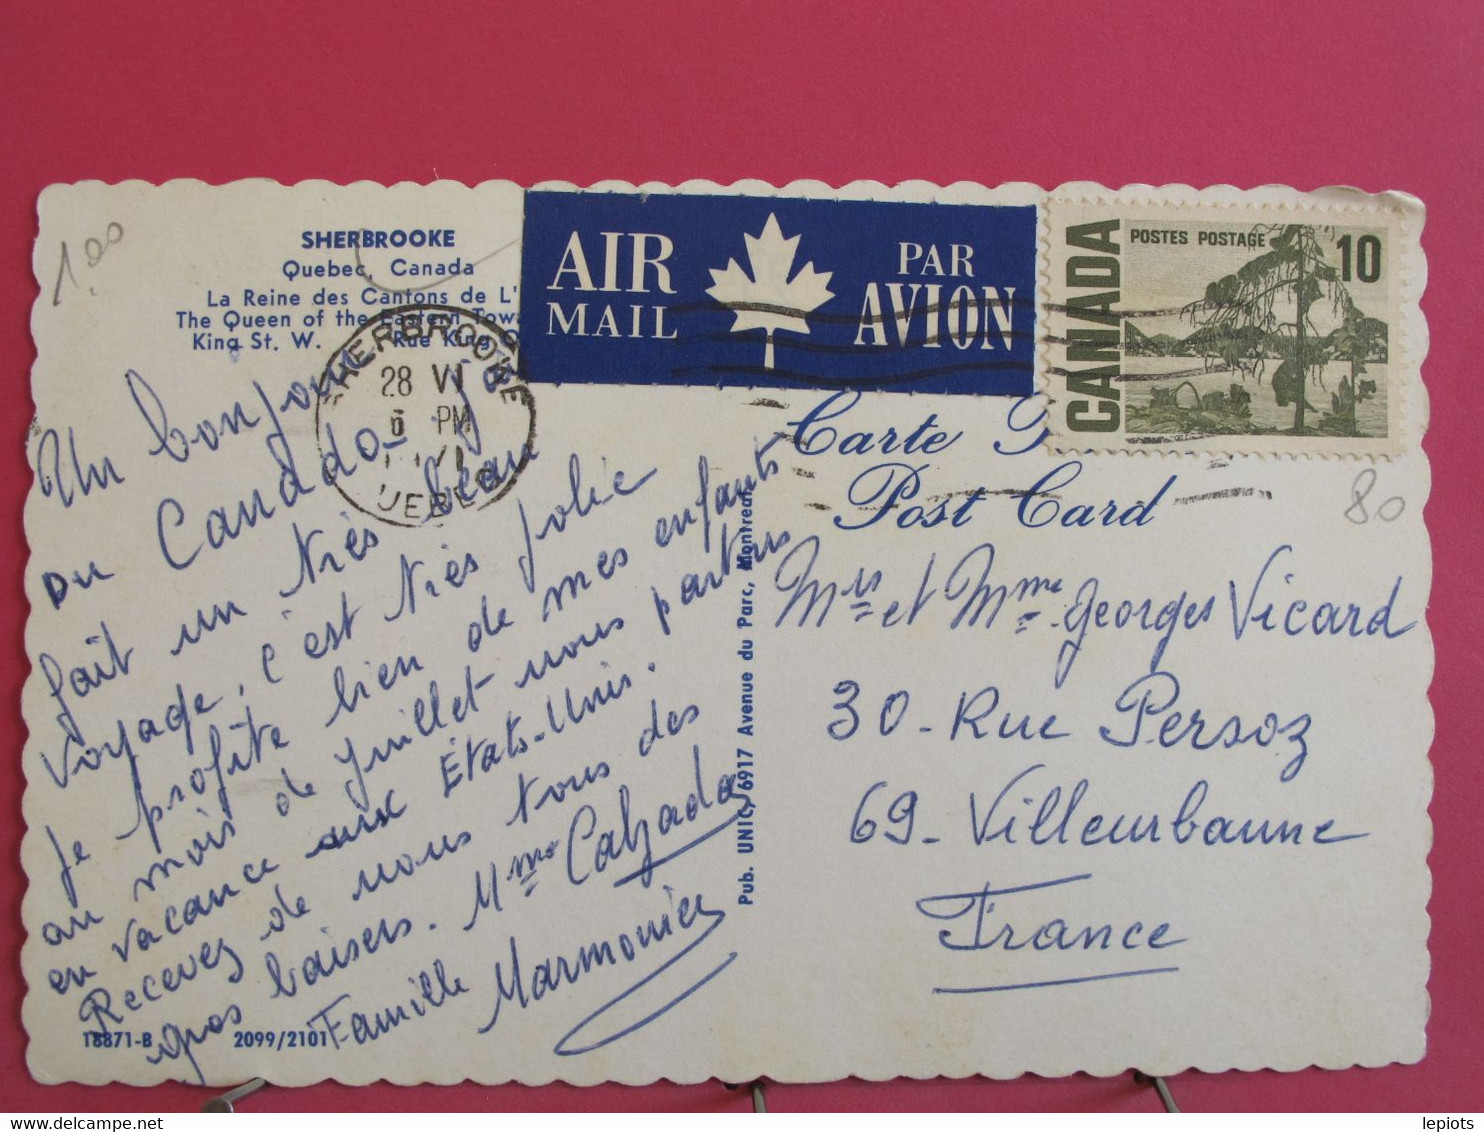 1.00
SHERBROOKE
Quebec, Canada
La Reine des Cantons de L'
The Queen of the Eastern Tow
King St. W. Rue King O
AIR MAIL
PAR AVION
CANADA
POSTES POSTAGE
10
SHERBROOKE
28 VI
6 PM
QUEBEC
Carte
Post Card
80
Un bonjour
du Canada
fait un très beau
voyage, c'est très jolie
je profite bien de mes enfants
au mois de juillet nous partons
en vacance aux États-Unis.
Recevez de nous tous des
gros baisers. Mme Calzada
Famille Marmonier
Pub. UNIC, 6917 Avenue du Parc, Montreal
Mrs et Mme Georges Vicard
30 - Rue Persoz
69 - Villeurbanne
France
18871-B 2099/2101
lepiots